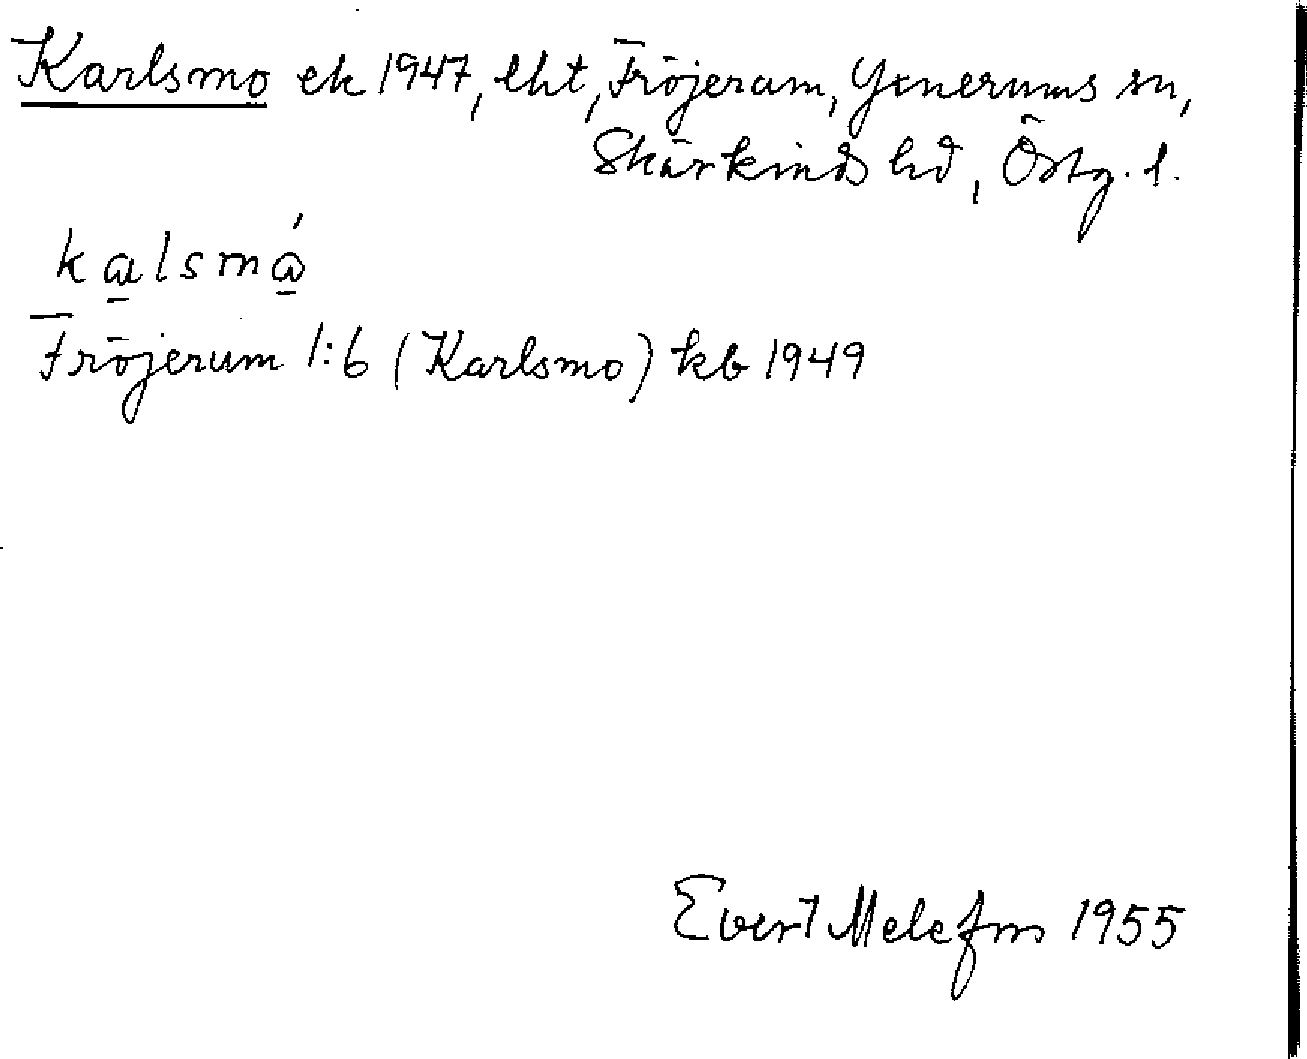 Karlsmo ek 1947, lht, Fröjerum, Yxnerums sn,
Skärkinds hd, Östg. l.
kalsmǻ
Fröjerum 1:6 (Karlsmo) kb 1949
Evert Melefors 1955